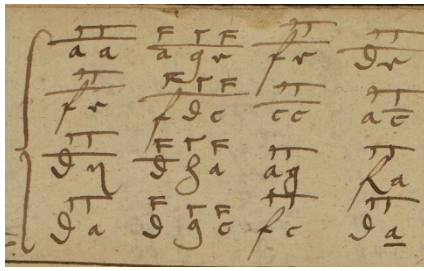 a a a g e f e d e
f e f d c c c a c
d d a a g a
d a d g c f c d a